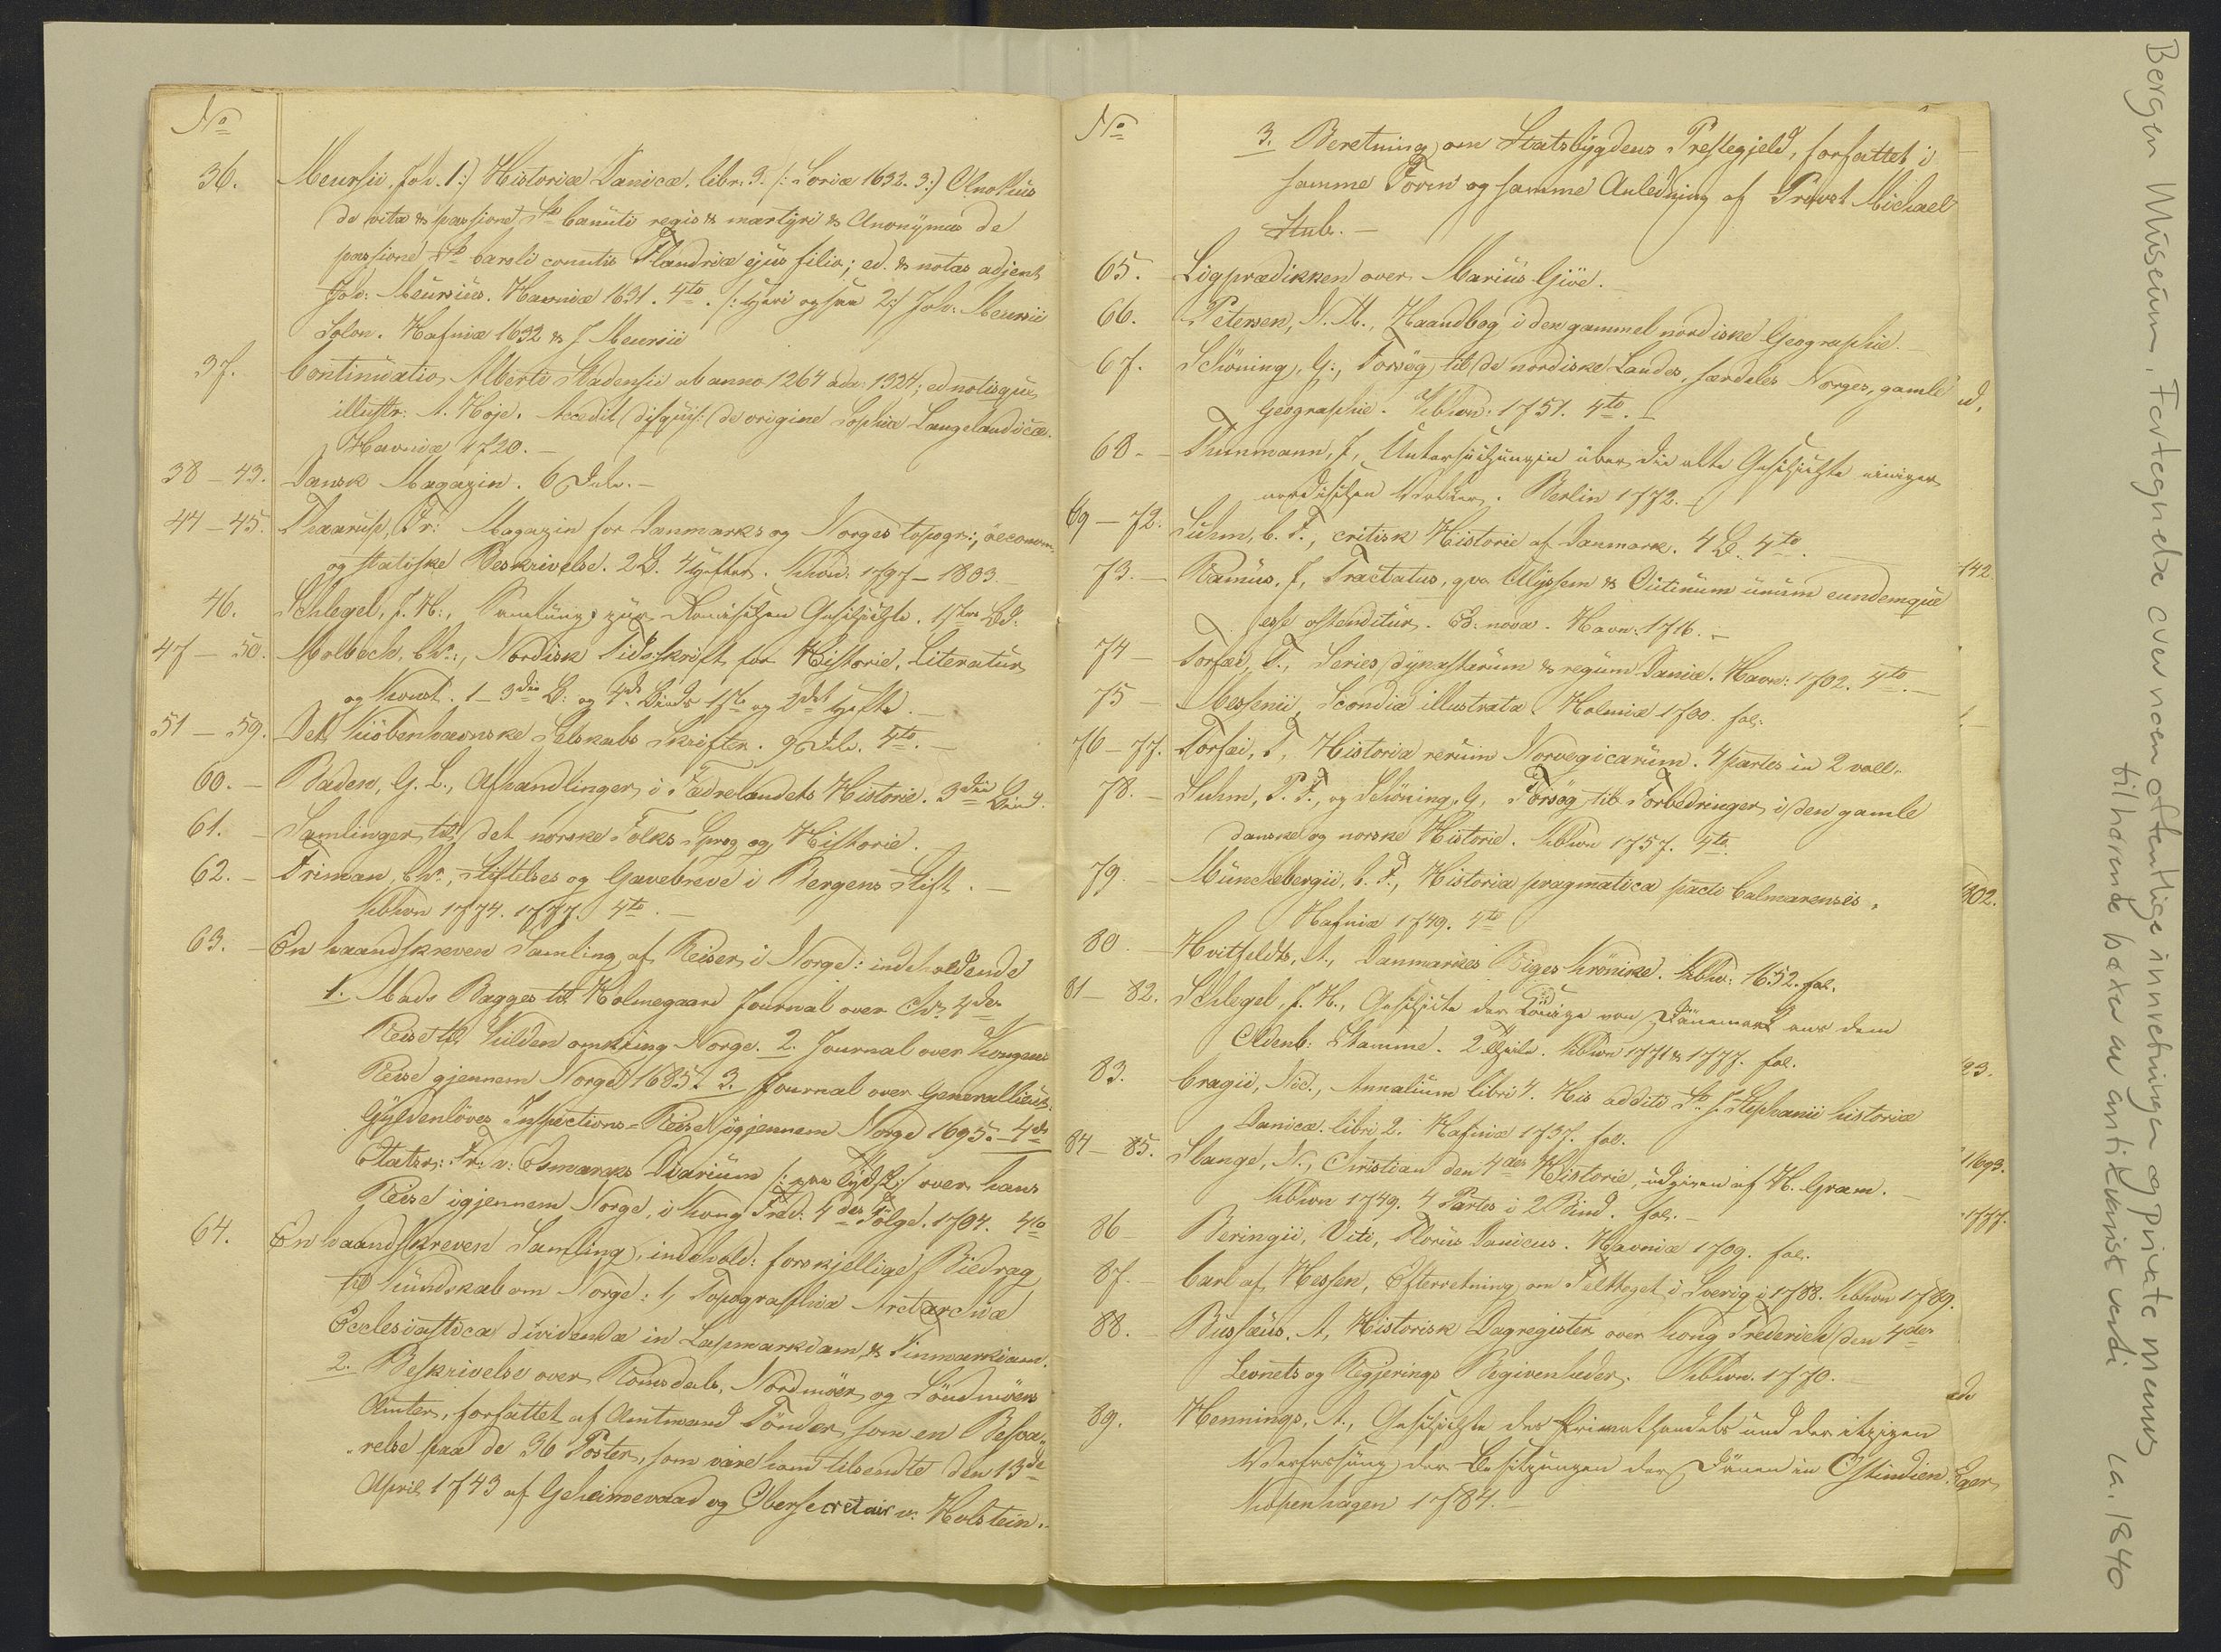 No
36. Meursii, Joh. 1:) Historiæ Danicæ, libr. 3. /: Soriæ 1632. 3:) Ælnothus
de vita & passione Sti Canuti regis & martyri & Anonymus de
passione Sti Caroli comitis Flandriæ ejus filio; ed. & notas adjent
Joh: Meursius. Havniæ 1631. 4to. /: heri ogsaa 2:/ Joh: Meursii
Solon. Hafniæ 1632 & J. Meursii
37. Continuatio Alberti Stadensis ab anno 1264 ad a: 1324; ed notisque
illustr: A. Hoje. Accedit disquis: de origine Sophiæ Langelandicæ.
Havniæ 1720. —
38 – 43. Dansk Magazin. 6 Dele. —
44 – 45. Thaarup, Fr: Magazin for Danmarks og Norges topogr:, oeconom:
og statiske Beskrivelse. 2 B. 4 Hefter. Khvn: 1797 – 1803. —
46. Schlegel, J. H:, Samlung zur Dänischen Geschichte. 1ster Bd:
47 – 50. Molbech, Chr:, Nordisk Tidsskrift for Historie, Literatur
og Konst. 1 – 3die B: og 4de Binds 1ste og 2det Hefte. —
51 – 59. Det Kiöbenhavnske Selskabs Skrifter. 9 Dele. 4to. —
60. – Baden, G. L., Afhandlinger i Fædrelandets Historie. 3die Bind.
61. – Samlinger til det norske Folks Sprog og Historie. —
62. – Friman, Chr., Stiftelses og Gavebreve i Bergens Stift. —
Kbhvn 1774. 1777. 4to. —
63. – En haandskreven Samling af Reiser i Norge: indeholdende
1. Mads Bagges til Holmegaard Journal over Chr: 4des
Reise til Kilden omkring Norge. 2. Journal over Kongens
Reise gjennem Norge 1685. 3. Journal over Generallieut:
Gyldenlöves Inspections-Reise igjennem Norge 1695. – 4de
Etatsr: Fr: v: Esmarcks Diarium /: paa Tydsk:/ over hans
Reise igjennem Norge, i Kong Fred: 4des Fölge. 1704. 4to
64. En haandskreven Samling, indehold: forskjellige Bidrag
til Kundskab om Norge: 1, Topographia Arctarchiæ
Ecclesiastica dividenda in Lapmarkiam & Finmarkiam.
2. Beskrivelse over Romsdals, Nordmörs og Söndmörs
Amter, forfattet af Amtmand Tönder som en Besva„
„relse paa de 36 Poster, som vare ham tilsendte den 13de
April 1743 af Geheimeraad og Obersecretair v: Holstein.
No
3. Beretning om Statsbygdens Prestegjeld, forfattet i
samme Form og samme Anledning af Provst Michael
Stub. —
65. Ligprædikken over Marius Giöe. —
66. Petersen, N. M., Haandbog i den gammel nordiske Geographie. —
67. Schöning, G:, Forsög til de nordiske Landes, særdeles Norges, gamle
Geographie. Kbhvn: 1751. 4to. —
68 – Thunmann, J, Untersuchungen über die alte Geschichte einiger
nordischen Völker. Berlin 1772. —
69 – 72. Suhm, C. F., critisk Historie af Danmark. 4 B. 4to. —
73. – Ramus, J, Tractatus, qvo Ulyssem & Outinum unum eundemque
esse ostenditur. Ed: nova. Havn: 1716. —
74 – Torfæi, T., Series dynastarum & regum Daniæ. Havn: 1702. 4to. —
75 – Messenii, Scondia illustrata. Holmiæ 1700. fol:
76 – 77. Torfæi, T, Historia rerum Norvegicarum. 4 partes in 2 voll.
78. – Suhm, P. F., og Schöning, G, Forsög til Forbedringer i den gamle
danske og norske Historie. Kbhvn 1757. 4to
79. – Münchebergii, C. F., Historia pragmatica pacti Calmarensis.
Hafniæ 1749. 4to
80. – Hvitfeldts, A., Danmarkes Riges Krönike. Kbhv: 1652. fol.
81 – 82. Schlegel, J. H., Geschichte der Könige von Dänemark aus dem
Oldenb: Stamme. 2 Theile. Kbhvn 1771 & 1777. fol.
83. Cragii, Nic., Annalium libri 4. His additi St. J. Stephanii historiæ
Danicæ libri 2. Hafniæ 1737. fol.
84 – 85. Slange, N., Christian den 4des Historie, udgiven af H. Gram. —
Kbhvn 1749. 4 Partes i 2 Bind. fol. —
86 Beringii, Viti, Florus Danicus. Havniæ 1709. fol.
87. – Carl af Hessen, Efterretning om Felttoget i Sverig i 1788. Kbhvn 1789.
88. – Bussæus, A, Historisk Dagregister over Kong Frederich den 4des
Levnets og Regjerings Begivenheder. Kbhvn. 1770.
89. Hennings, A., Geschichte des Privathandels und der itzigen
Verfassung der Besitzungen der Dänen in Ostindien.
Kopenhagen 1784. —
d.
142.
302.
23.
1693.
1777.
Eger
Bergen Museum, Fortegnelse over noen offentlige innretninger og private menns
tilhørende bøker av antikvarisk verdi ca. 1840